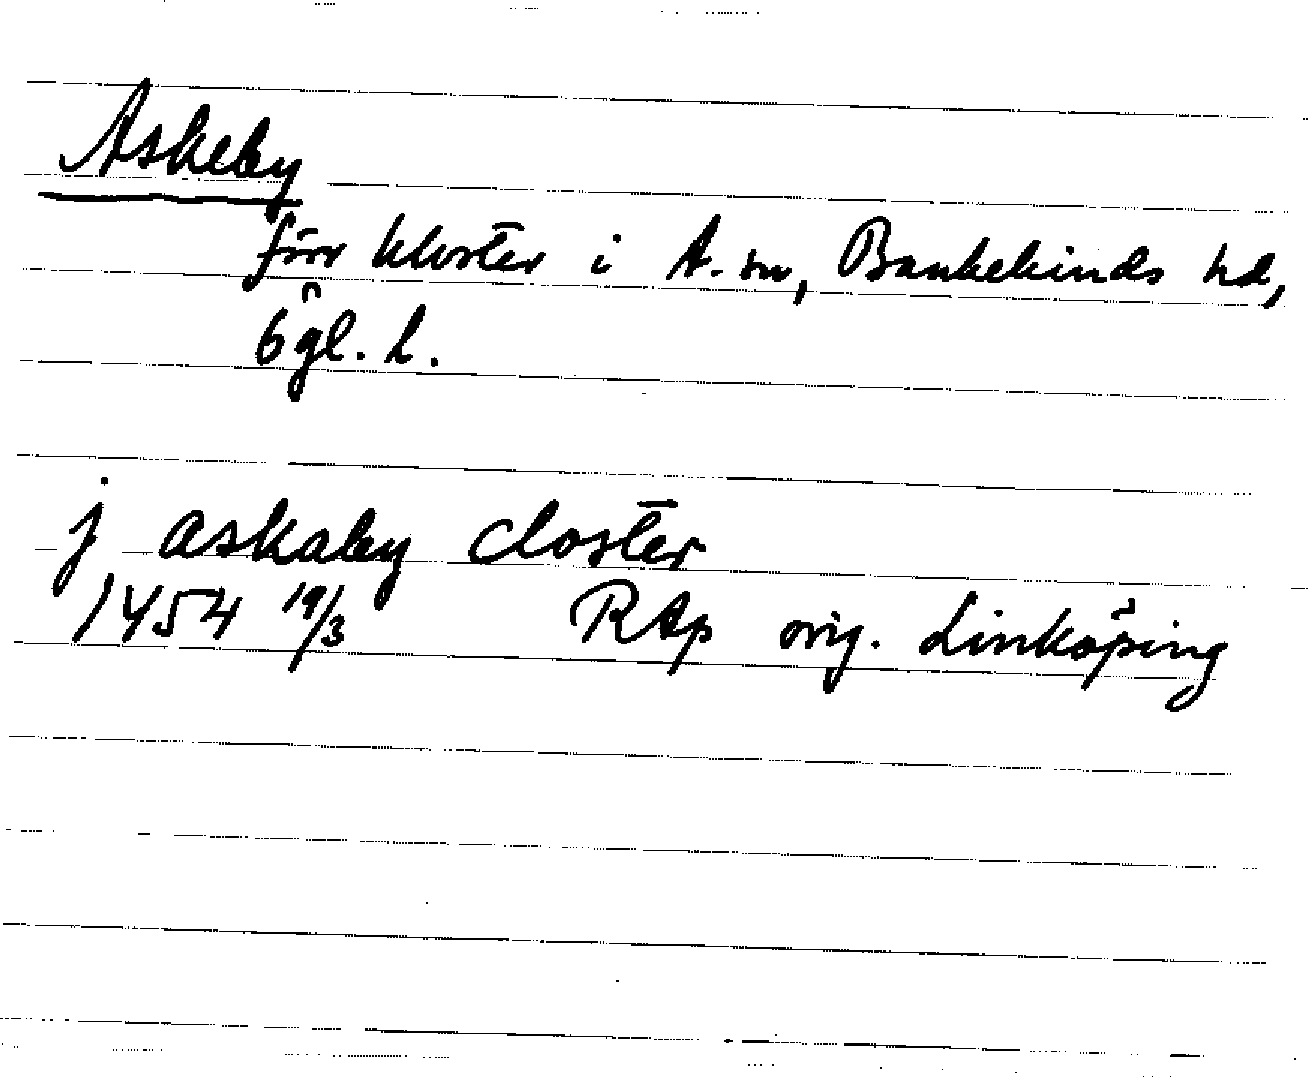 Askeby
förr kloster i A. sn, Bankekinds hd,
Ögl. l.
j askaby closter
1454 19/3 RAp orig. Linköping